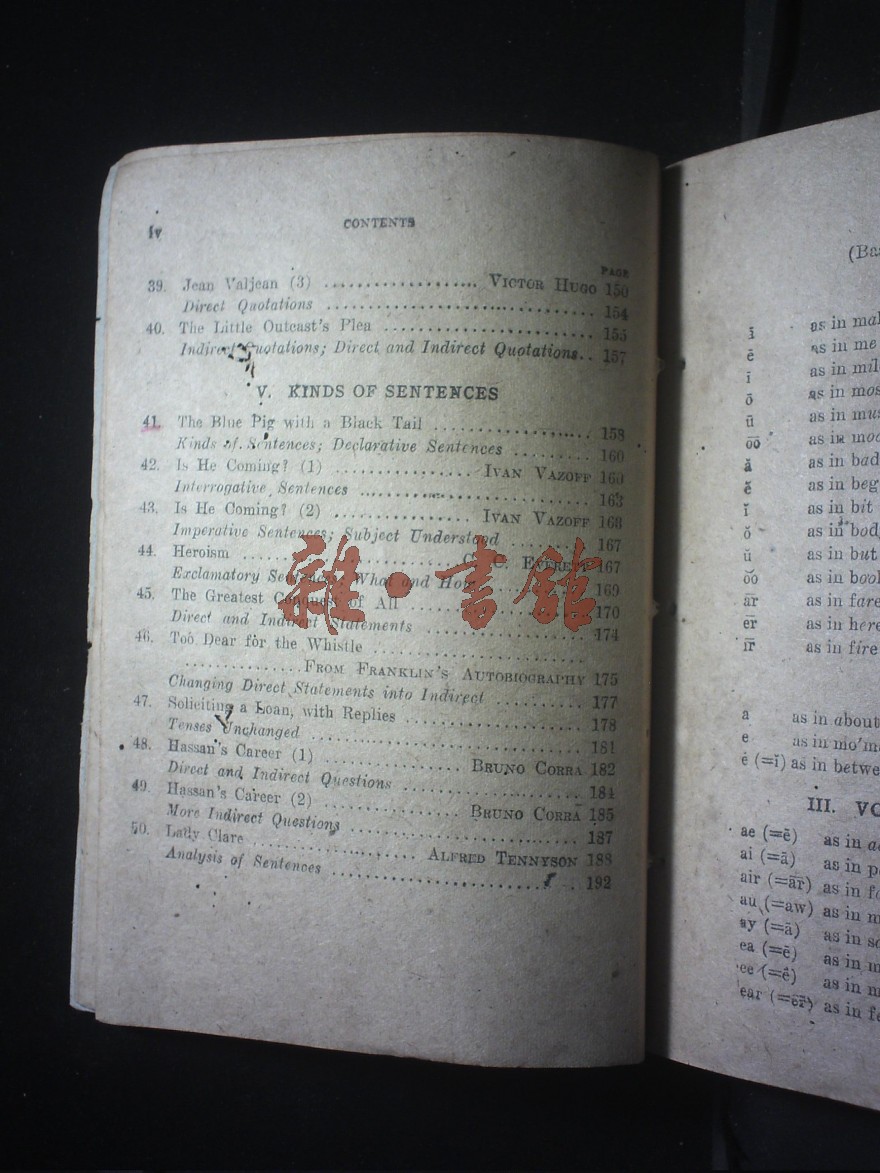 iv
CONTENTS
PAGE
39. Jean Valjean (3) .................. VICTOR HUGO 150
Direct Quotations .............................. 154
40. The Little Outcast's Plea ........................ 155
Indirect Quotations; Direct and Indirect Quotations.. 157
V. KINDS OF SENTENCES
41. The Blue Pig with a Black Tail .................. 158
Kinds of Sentences; Declarative Sentences ......... 160
42. Is He Coming? (1) ................ IVAN VAZOFF 160
Interrogative Sentences ........................ 163
43. Is He Coming? (2) ................ IVAN VAZOFF 163
Imperative Sentences; Subject Understood ......... 167
44. Heroism ........................ C. C. EVERETT 167
Exclamatory Sentences; What and How ............ 169
45. The Greatest Conquest of All .................. 170
Direct and Indirect Statements .................. 174
46. Too Dear for the Whistle ........................
..............FROM FRANKLIN'S AUTOBIOGRAPHY 175
Changing Direct Statements into Indirect ......... 177
47. Soliciting a Loan, with Replies .................. 178
Tenses Unchanged .............................. 181
48. Hassan's Career (1) ............... BRUNO CORRA 182
Direct and Indirect Questions .................. 184
49. Hassan's Career (2) ............... BRUNO CORRA 185
More Indirect Questions ........................ 187
50. Lady Clare .................. ALFRED TENNYSON 188
Analysis of Sentences ........................... 192
雜·書館
(Bas
as in mal
ē as in me
ī as in mil
ō as in mos
ū as in mus
ōō as in moo
ă as in bad
ĕ as in beg
ĭ as in bit
ŏ as in bod
ŭ as in but
ŏŏ as in bool
ār as in fare
ēr as in here
īr as in fire
a as in about
e as in mo'me
ė (=ĭ) as in betwe
III. VO
ae (=ē) as in ae
ai (=ā) as in p
air (=ār) as in fa
au (=aw) as in m
ay (=ā) as in sa
ea (=ē) as in m
ee (=ē) as in m
ear (=ēr) as in fe